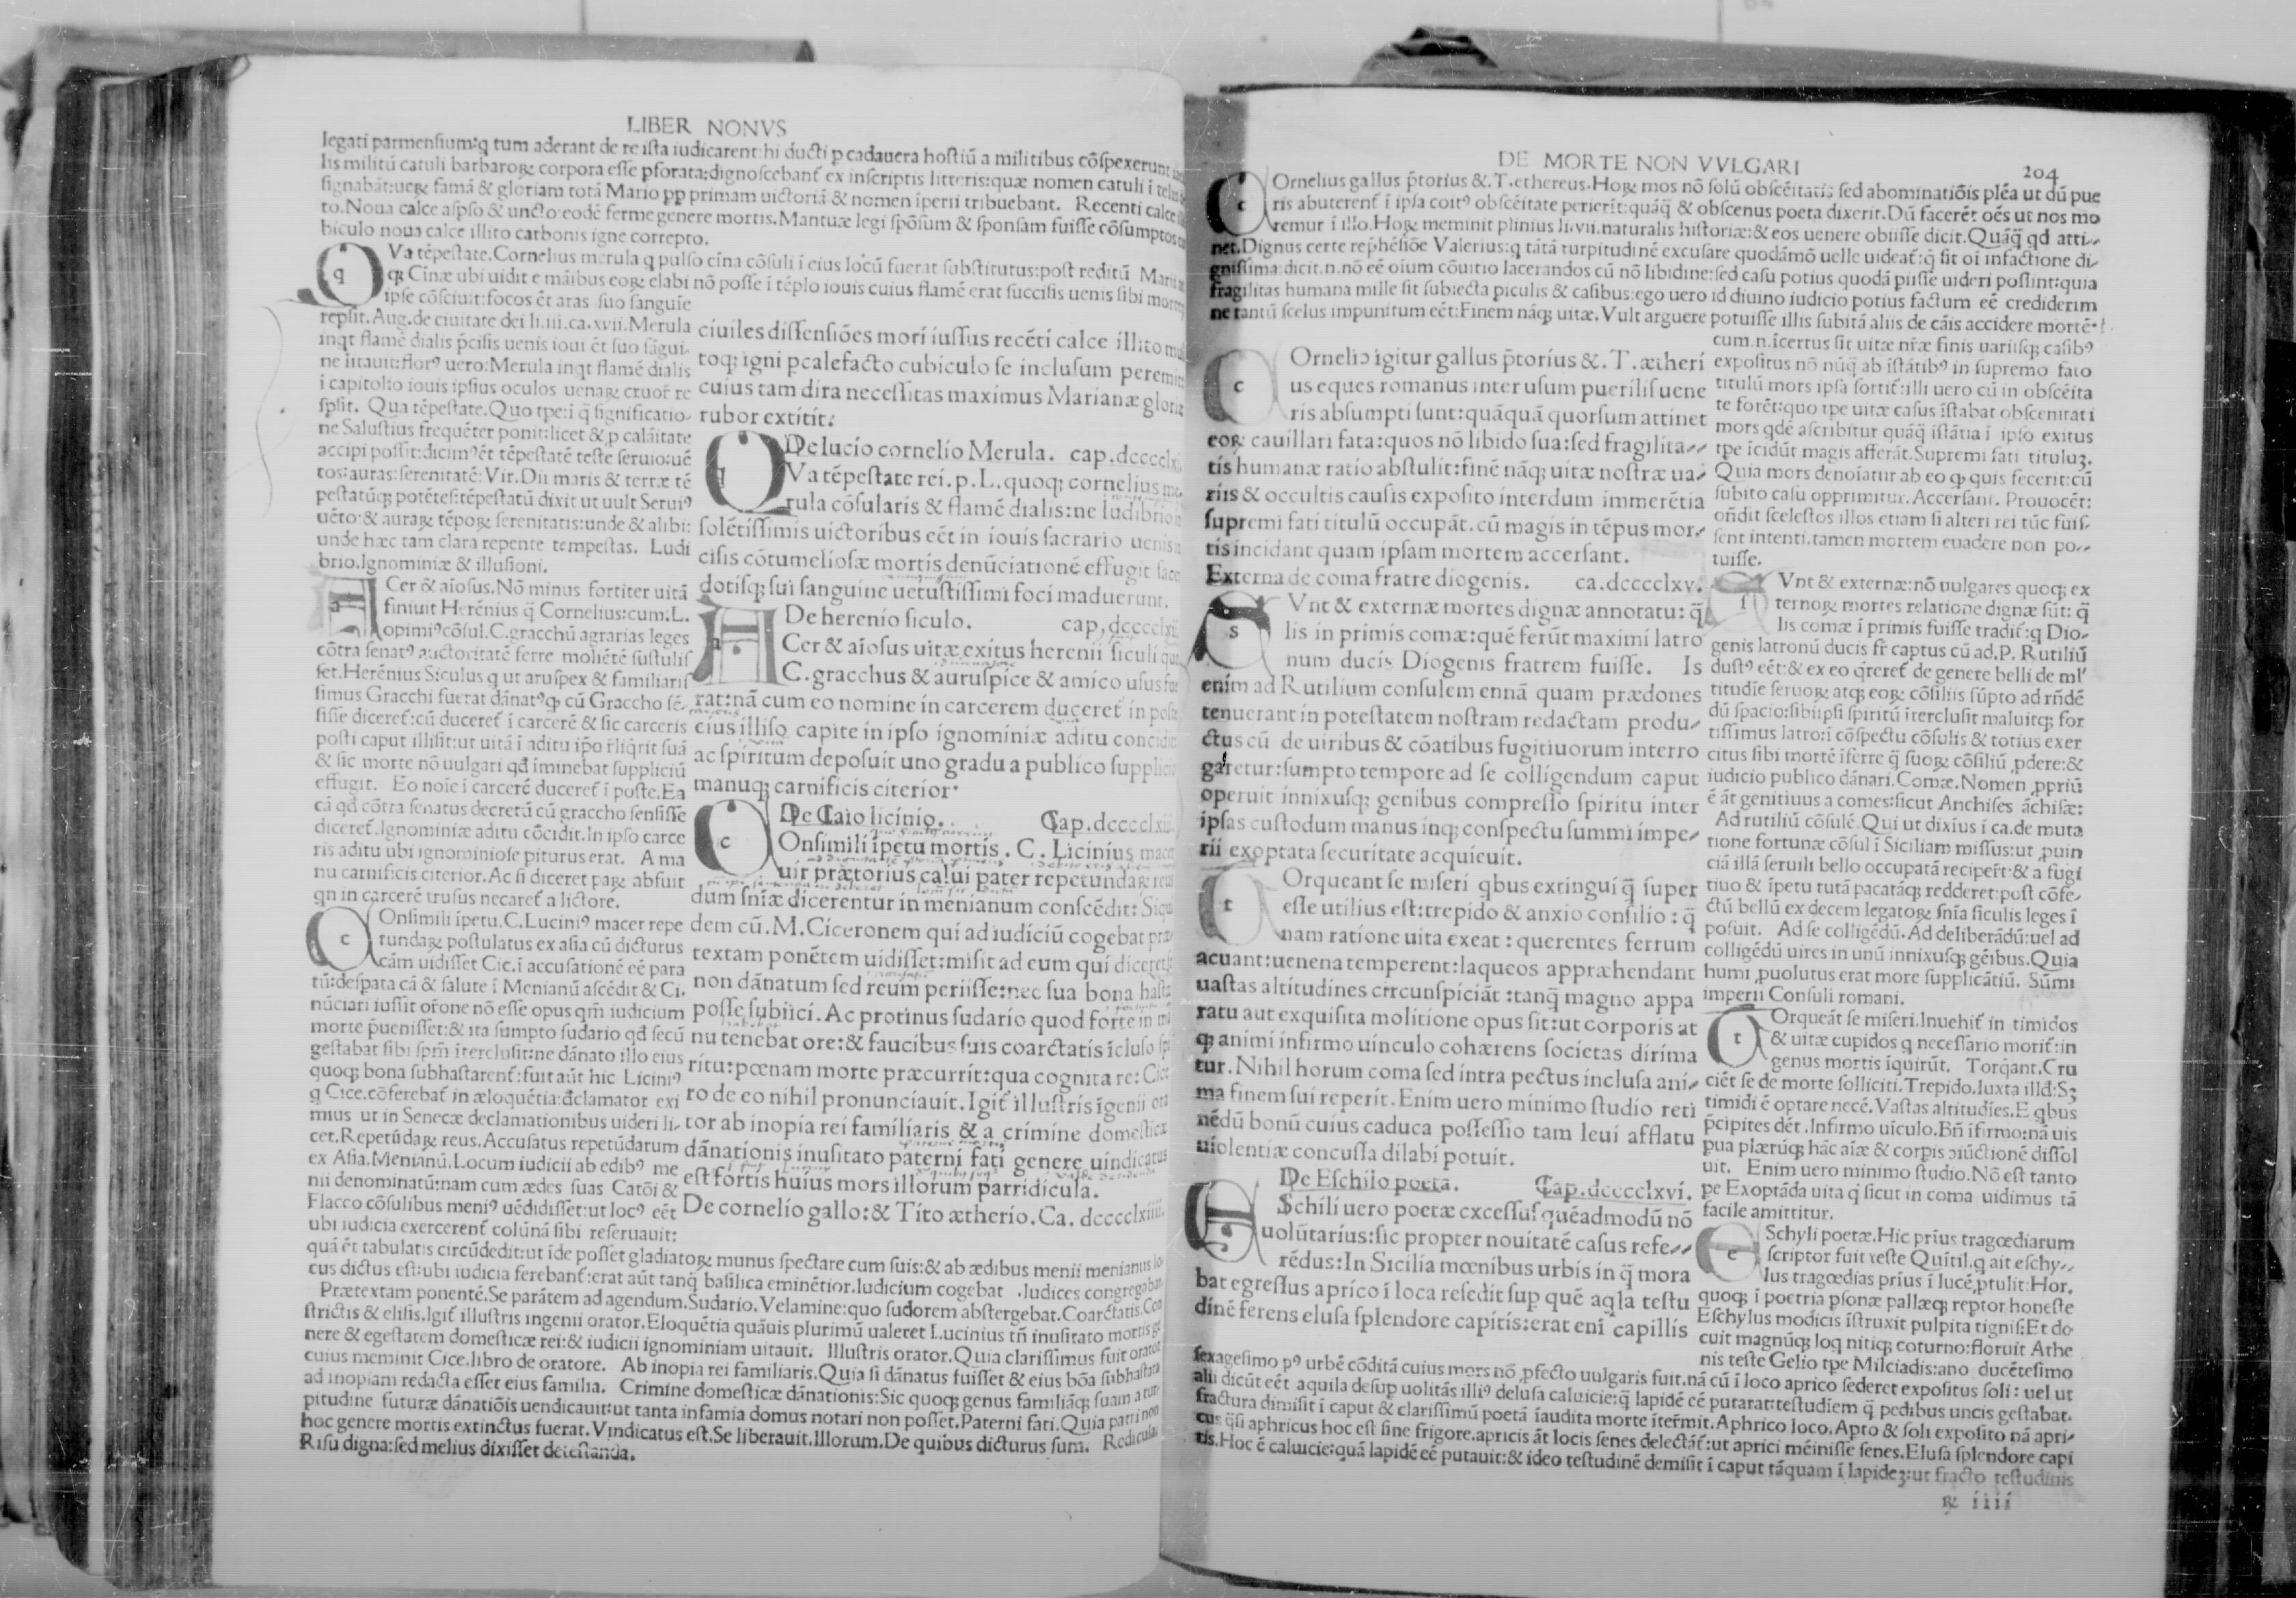 LIBER NONVS
legati parmensium:q tum aderant de re ista iudicarent:hi ducti p cadauera hostiū a militibus cōspexerunt
lis militū catuli barbaroꝝ corpora esse pforata:dignoscebant̄ ex inscriptis litteris:quæ nomen catuli ī telis
signabāt:ueꝝ famā & gloriam totā Mario pp primam uictoriā & nomen īperii tribuebant. Recenti calce
to.Noua calce aspso & uncto:eodē ferme genere mortis.Mantuæ legi spōsum & sponsam fuisse cōsumptos
biculo noua calce illito carbonis igne correpto.
QVa tēpestate.Cornelius merula q pulso cīna cōsuli ī eius locū fuerat substitutus:post reditū
qꝫ Cīnæ ubi uidit e māibus eoꝝ elabi nō posse ī tēplo iouis cuius flamē erat succisis uenis sibi
ipse cōsciuit:focos ēt aras suo sanguīe
repsit.Aug.de ciuitate dei li.iii.ca.xvii.Merula
inqt flamē dialis p̄cisis uenis ioui ēt suo sāgui-
ne litauit:florꝰ uero:Merula inqt flamē dialis
ī capitolio iouis ipsius oculos uenaꝝ cruor̄ re
spsit. Qua tēpestate.Quo tpe:ī q̄ significatio-
ne Salustius frequēter ponit:licet & p calāitate
accipi possit:dicimꝰ ēt tēpestatē teste seruio:uē
tos:auras:serenitatē:Vir.Dii maris & terræ tē
pestatūqꝫ potētes:tēpestatū dixit ut uult Seruiꝰ
uēto:& auraꝝ tēpoꝝ serenitatis:unde & alibi:
unde hæc tam clara repente tempestas. Ludi
brio.Ignominiæ & illusioni.
ACer & aīosus.Nō minus fortiter uitā
finiuit Herēnius q̄ Cornelius:cum.L.
opimiꝰ cōsul.C.gracchū agrarias leges
cōtra senatꝰ auctoritatē ferre moliētē sustulis
set.Herēnius Siculus q ut aruspex & familiaris
simus Gracchi fuerat dānatꝰ qꝫ cū Graccho sē-
sisse diceret̄:cū duceret̄ ī carcerē & sic carceris
posti caput illisit:ut uitā ī aditu ip̄o r̄liq̄rit suā
& sic morte nō uulgari qđ īminebat suppliciū
effugit. Eo noīe ī carcerē duceret̄ ī poste.Ea
cā qđ cōtra senatus decretū cū graccho sensisse
diceret̄.Ignominiæ aditu cōcidit.In ipso carce
ris aditu ubi ignominiose piturus erat. A ma
nu carnificis citerior.Ac si diceret paꝝ abfuit
qn in carcerē trusus necaret̄ a lictore.
COnsimili īpetu.C.Luciniꝰ macer repe
tundaꝝ postulatus ex asia cū dicturus
cām uidisset Cic.ī accusationē eē para
tū:despata cā & salute ī Menianū ascēdit & Ci.
nūciari iussit or̄one nō esse opus qm̄ iudicium
morte p̄uenisset:& ita sumpto sudario qđ secū
gestabat sibi spm̄ īterclusit:ne dānato illo eius
quoqꝫ bona subhastarent̄:fuit aūt hic Liciniꝰ
q Cice.cōferebat̄ in æloquētia:đclamator exi
mius ut in Senecæ declamationibus uideri li-
cet.Repetūdaꝝ reus.Accusatus repetūdarum
ex Asia.Menianū.Locum iudicii ab edibꝰ me
nii denominatū:nam cum ædes suas Catōi &
Flacco cōsulibus meniꝰ uēdidisset:ut locꝰ eēt
ubi iudicia exercerent̄ colūnā sibi reseruauit:
quā ēt tabulatis circūdedit:ut īde posset gladiatoꝝ munus spectare cum suis:& ab ædibus menii menianus
cus dictus est:ubi iudicia ferebant̄:erat aūt tanq̄ basilica eminētior.Iudicium cogebat .Iudices
Prætextam ponentē.Se parātem ad agendum.Sudario.Velamine:quo sudorem abstergebat.Coarctatis.Con
strictis & elisis.Igit̄ illustris ingenii orator.Eloquētia quāuis plurimū ualeret Lucinius tn̄ inusitato mortis ge
nere & egestatem domesticæ rei:& iudicii ignominiam uitauit. Illustris orator.Quia clarissimus fuit orator
cuius meminit Cice.libro de oratore. Ab inopia rei familiaris.Quia si dānatus fuisset & eius bōa subhastata
ad inopiam redacta esset eius familia. Crimine domesticæ dānationis:Sic quoqꝫ genus familiāqꝫ suam a tur
pitudine futuræ dānatiōis uendicauit:ut tanta infamia domus notari non posset.Paterni fati.Quia patri non
hoc genere mortis extinctus fuerat.Vindicatus est.Se liberauit.Illorum.De quibus dicturus sum. Redicula.
Risu digna:sed melius dixisset detestanda.
ciuiles dissensiōes mori iussus recēti calce illito
toqꝫ igni pcalefacto cubiculo se inclusum peremit:
cuius tam dira necessitas maximus Marianæ gloriæ
rubor extitit.
De lucio cornelio Merula. cap.dcccclxi.
QVa tēpestate rei.p.L.quoqꝫ cornelius me-
rula cōsularis & flamē dialis:ne ludibrio
solētissimis uictoribus eēt in iouis sacrario uenis
cisis cōtumeliosæ mortis denūciationē effugit
dotisqꝫ sui sanguine uetustissimi foci maduerunt.
De herenio siculo. cap,dcccclxii
ACer & aīosus uitæ exitus herenii siculi
C.gracchus & auruspice & amico usus
rat:nā cum eo nomine in carcerem duceret̄ in poste
eius illiso capite in ipso ignominiæ aditu concidit
ac spiritum deposuit uno gradu a publico supplicio
manuqꝫ carnificis citerior.
De Caio licinio. Cap.dcccclxiii.
COnsimili īpetu mortis. C. Licinius macer
uir prætorius calui pater repetundaꝝ reus
dum sn̄iæ dicerentur in menianum conscēdit: Siqui
dem cū.M.Ciceronem qui ad iudiciū cogebat præ
textam ponētem uidisset:misit ad eum qui diceret
non dānatum sed reum periisse:nec sua bona hastæ
posse subiici.Ac protinus sudario quod forte in ma
nu tenebat ore:& faucibus suis coarctatis īcluso spi
ritu:pœnam morte præcurrit:qua cognita re: Cice
ro de eo nihil pronunciauit.Igit̄ illustris īgenii ora
tor ab inopia rei familiaris & a crimine domesticæ
dānationis inusitato paterni fati genere uindicatus
est fortis huius mors illorum parridicula.
De cornelio gallo:& Tito ætherio.Ca. dcccclxiiii.
DE MORTE NON VVLGARI 204
COrnelius gallus p̄torius &.T.ethereus.Hoꝝ mos nō solū obscēitatis sed abominatiōis plēa ut dū pue
ris abuterent̄ ī ipsa coitꝰ obscēitate perierīt:quāq̄ & obscenus poeta dixerit.Dū facerēt oēs ut nos mo
remur ī illo.Hoꝝ meminit plinius li.vii.naturalis historiæ:& eos uenere obiisse dicit.Quāq̄ qđ atti-
net.Dignus certe rep̄hēsiōe Valerius:q tātā turpitudinē excusare quodāmō uelle uideat̄:q̄ sit oī infactione di-
gnissima:dicit.n.nō eē oīum cōuitio lacerandos cū nō libidine:sed casu potius quodā piisse uideri possint:quia
fragilitas humana mille sit subiecta piculis & casibus:ego uero id diuino iudicio potius factum eē crediderim
ne tantū scelus impunitum eēt:Finem nāqꝫ uitæ.Vult arguere potuisse illis subitā aliis de cāis accidere mortē.
COrnelio īgitur gallus p̄torius &. T. ætheri
us eques romanus inter usum puerilis uene
ris absumpti sunt:quāquā quorsum attinet
eoꝝ cauillari fata:quos nō libido sua:sed fragilita-
tis humanæ ratio abstulit:finē nāqꝫ uitæ nostræ ua-
riis & occultis causis exposito interdum immerētia
supremi fati titulū occupāt.cū magis in tēpus mor-
tis incidant quam ipsam mortem accersant.
Externa de coma fratre diogenis. ca.dcccclxv.
SVnt & externæ mortes dignæ annotatu: q̄
lis in primis comæ:quē ferūt maximi latro
num ducis Diogenis fratrem fuisse. Is
enim ad Rutilium consulem ennā quam prædones
tenuerant in potestatem nostram redactam produ-
ctus cū de uiribus & cōatibus fugitiuorum interro
garetur:sumpto tempore ad se colligendum caput
operuit innixusqꝫ genibus compresso spiritu inter
ipsas custodum manus inqꝫ conspectu summi impe-
rii exoptata securitate acquieuit.
TOrqueant se miseri qbus extinguī q̄ super
esse utilius est:trepido & anxio consilio : q̄
nam ratione uita exeat : querentes ferrum
acuant:uenena temperent:laqueos appræhendant
uastas altitudines circunspiciāt :tanq̄ magno appa
ratu aut exquisita molitione opus sit:ut corporis at
qꝫ animi infirmo uinculo cohærens societas dirima
tur.Nihil horum coma sed intra pectus inclusa ani-
ma finem sui reperit.Enim uero minimo studio reti
nēdū bonū cuius caduca possessio tam leui afflatu
uiolentiæ concussa dilabi potuit.
De Eschilo poeta. Cap.dcccclxvi.
ESchili uero poetæ excessus quēadmodū nō
uolūtarius:sic propter nouitatē casus refe-
rēdus:In Sicilia mœnibus urbis in q̄ mora
bat egressus aprico ī loca resedit sup quē aqla testu
dinē ferens elusa splendore capitis:erat enī capillis
cum.n.īcertus sit uitæ nr̄æ finis uariisqꝫ casibꝰ
expositus nō nūq̄ ab īstātibꝰ in supremo fato
titulū mors ipsa sortit̄:illi uero cū in obscēita
te forēt:quo tpe uitæ casus īstabat obscenitati
mors qdē ascribitur quāq̄ īstātia ī ipso exitus
tpe īcidūt magis afferāt.Supremi fati titulūꝫ.
Quia mors denoīatur ab eo qꝫ quis fecerit:cū
subito casu opprimitur.Accersant. Prouocēt:
on̄dit scelestos illos etiam si alteri rei tūc fuis-
sent intenti.tamen mortem euadere non po-
tuisse.
SVnt & externæ:nō uulgares quoqꝫ ex
ternoꝝ mortes relatione dignæ sūt: q̄
lis comæ ī primis fuisse tradit̄:q Dio-
genis latronū ducis fr̄ captus cū ad.P. Rutiliū
dustꝰ eēt:& ex eo q̄reret̄ de genere belli de ml'
titudīe seruoꝝ atqꝫ eoꝝ cōsiliis sūpto ad rn̄dē
dū spacio:sibiipsi spiritū īterclusit maluitqꝫ for
tissimus latro:ī cōspectu cōsulis & totius exer
citus sibi mortē īferre q̄ suoꝝ cōsiliū ꝓdere:&
iudicio publico dānari.Comæ.Nomen ꝓpriū
ē āt genitiuus a comes:sicut Anchises āchisæ:
Ad rutiliū cōsulē.Qui ut dixius ī ca.de muta
tione fortunæ cōsul ī Siciliam missus:ut ꝓuin
ciā illā seruili bello occupatā reciper̄t:& a fugi
tiuo & īpetu tutā pacatāqꝫ redderet:post cōfe-
ctū bellū ex decem legatoꝝ sn̄ia siculis leges ī
posuit. Ad se colligēdū.Ad deliberādū:uel ad
colligēdū uires in unū innixusqꝫ gēibus.Quia
humi ꝓuolutus erat more supplicātiū. Sūmi
imperii Consuli romani.
TOrqueāt se miseri.Inuehit̄ in timidos
& uitæ cupidos q necessario morit̄:in
genus mortis īquirūt. Torq̄ant.Cru
ciēt se de morte solliciti.Trepido.Iuxta illđ:Sꝫ
timidi ē optare necē.Vastas altitudīes.E qbus
p̄cipites dēt .Infirmo uīculo.Bn̄ īfirmo:nā uis
pua plærūqꝫ hāc aīæ & corpis ꝯiūctionē dissol
uit. Enim uero minimo studio.Nō est tanto
pe Exoptāda uita q̄ sicut in coma uidimus tā
facile amittitur.
ESchyli poetæ.Hic prius tragœdiarum
scriptor fuit teste Quītil.q ait eschy-
lus tragœdias prius ī lucē ꝓtulit:Hor.
quoqꝫ ī poetria psonæ pallæqꝫ reptor honestæ
Eschylus modicis īstruxit pulpita tignis:Et do
cuit magnūqꝫ loq nitiqꝫ coturno:floruit Athe
nis teste Gelio tpe Milciadis:ano ducētesimo
sexagesimo pꝰ urbē cōditā cuius mors nō ꝓfecto uulgaris fuit.nā cū ī loco aprico sederet expositus soli: uel ut
alii dicūt eēt aquila desup uolitās illiꝰ delusa caluicie:q̄ lapidē eē putarat:testudīem q̄ pedibus uncis gestabat.
fractura dimisit ī caput & clarissimū poetā īaudita morte īter̄mit.Aphrico loco.Apto & soli exposito nā apri-
cus q̄si aphricus hoc est sine frigore.apricis āt locis senes delectāt̄:ut aprici mēinisse senes.Elusa splendore capi
tis.Hoc ē caluicie:quā lapidē eē putauit:& ideo testudinē demisit ī caput tāquam ī lapidēꝫ:ut fracto testudinis
ꝝ iiii